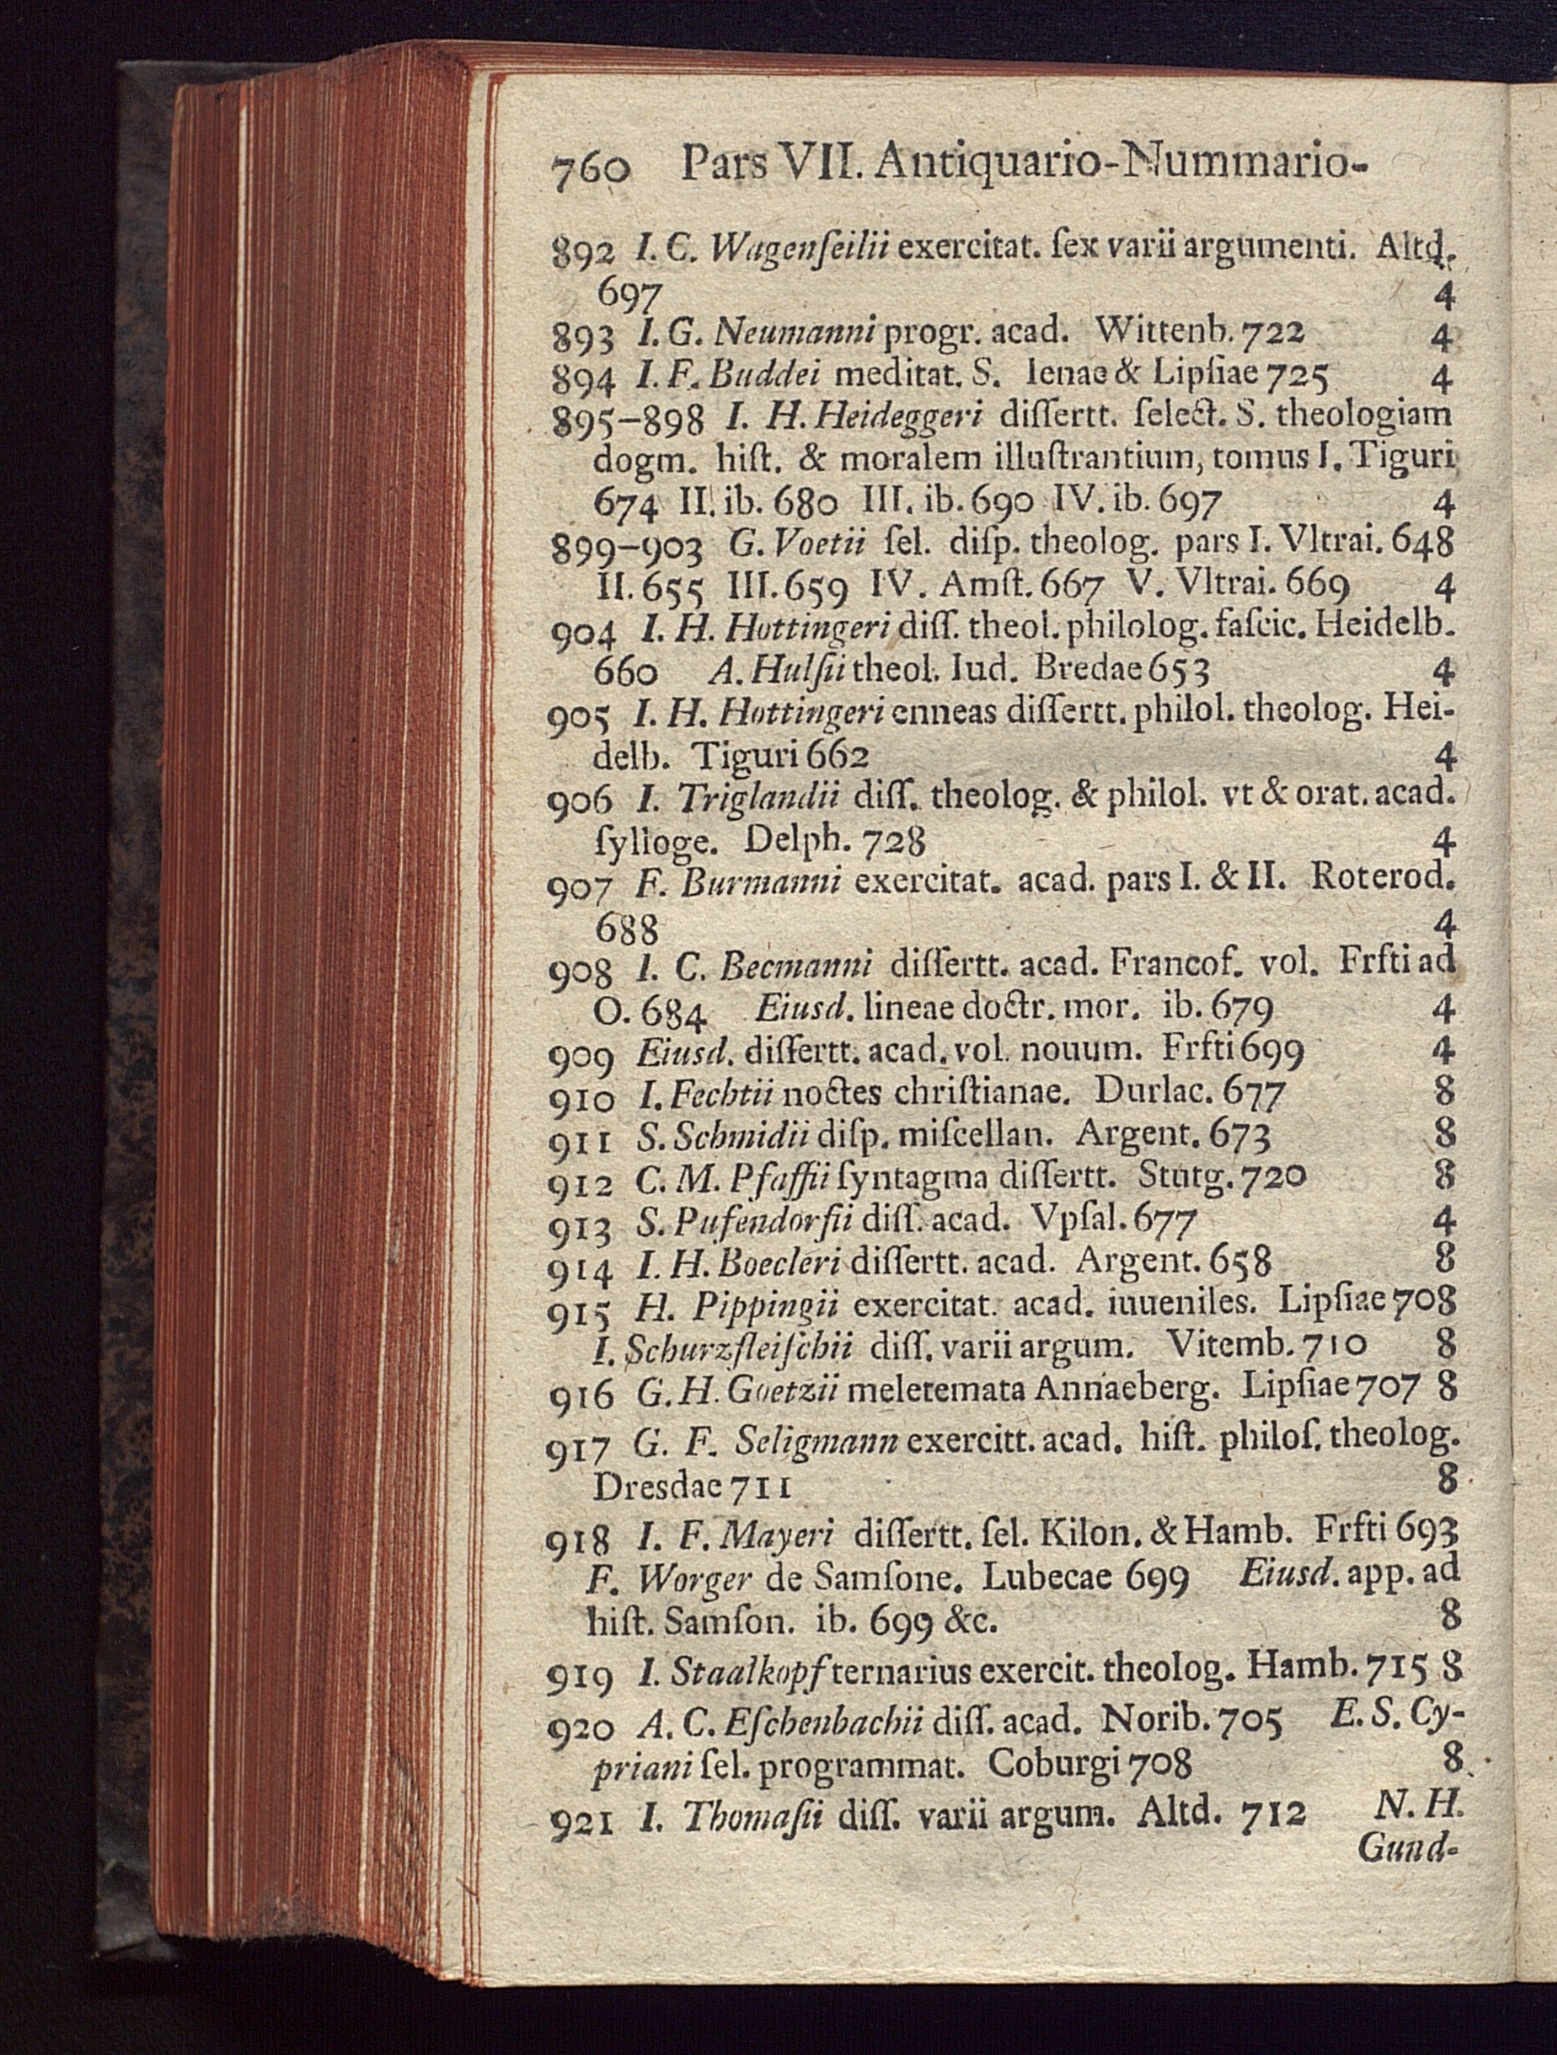 760 Pars VII. Antiquario-Nummario-
892 I. C. Wagenſeilii exercitat. ſex varii argumenti. Altd.
697 4
893 I. G. Neumanni progr. acad. Wittenb. 722 4
894 I. F. Buddei meditat. S. Ienae & Lipſiae 725 4
895-898 I. H. Heideggeri diſſertt. ſelect. S. theologiam
dogm. hiſt. & moralem illuſtrantium, tomus I. Tiguri
674 II. ib. 680 III. ib. 690 IV. ib. 697 4
899-903 G. Voetii ſel. diſp. theolog. pars I. Vltrai. 648
II. 655 III. 659 IV. Amſt. 667 V. Vltrai. 669 4
904 I. H. Hottingeri diſſ. theol. philolog. faſcic. Heidelb.
660 A. Hulſii theol. Iud. Bredae 653 4
905 I. H. Hottingeri enneas diſſertt. philol. theolog. Hei-
delb. Tiguri 662 4
906 I. Triglandii diſſ. theolog. & philol. vt & orat. acad.
ſylloge. Delph. 728 4
907 F. Burmanni exercitat. acad. pars I. & II. Roterod.
688 4
908 I. C. Becmanni diſſertt. acad. Francof. vol. Frfti ad
O. 684 Eiusd. lineae doctr. mor. ib. 679 4
909 Eiusd. diſſertt. acad. vol. nouum. Frfti 699 4
910 I. Fechtii noctes chriſtianae. Durlac. 677 8
911 S. Schmidii diſp. miſcellan. Argent. 673 8
912 C. M. Pfaffii ſyntagma diſſertt. Stutg. 720 8
913 S. Pufendorfii diſſ. acad. Vpſal. 677 4
914 I. H. Boecleri diſſertt. acad. Argent. 658 8
915 H. Pippingii exercitat. acad. iuueniles. Lipſiae 708
I. Schurzfleiſchii diſſ. varii argum. Vitemb. 710 8
916 G. H. Goetzii meletemata Annaeberg. Lipſiae 707 8
917 G. F. Seligmann exercitt. acad. hiſt. philoſ. theolog.
Dresdae 711 8
918 I. F. Mayeri diſſertt. ſel. Kilon. & Hamb. Frfti 693
F. Worger de Samſone. Lubecae 699 Eiusd. app. ad
hiſt. Samſon. ib. 699 &c. 8
919 I. Staalkopf ternarius exercit. theolog. Hamb. 715 8
920 A. C. Eſchenbachii diſſ. acad. Norib. 705 E. S. Cy-
priani ſel. programmat. Coburgi 708 8
921 I. Thomaſii diſſ. varii argum. Altd. 712 N. H.
Gund-